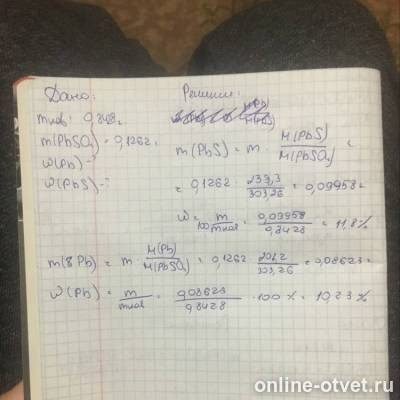 Дано:
Решение:
mнав: 0,8428г
m(PbSO₄) = 0,1262
ω(Pb) - ?
ω(PbS) - ?
m(PbS) = m · M(PbS) / M(PbSO₄) =
= 0,1262 · 239,3 / 303,26 = 0,09958г
ω = 100 m / mнав = 0,09958 / 0,8428 = 11,8%
m(Pb) = m · M(Pb) / M(PbSO₄) = 0,1262 · 207,2 / 303,26 = 0,08623г
ω(Pb) = m / mнав = 0,08623 / 0,8428 · 100% = 10,23%
online-otvet.ru